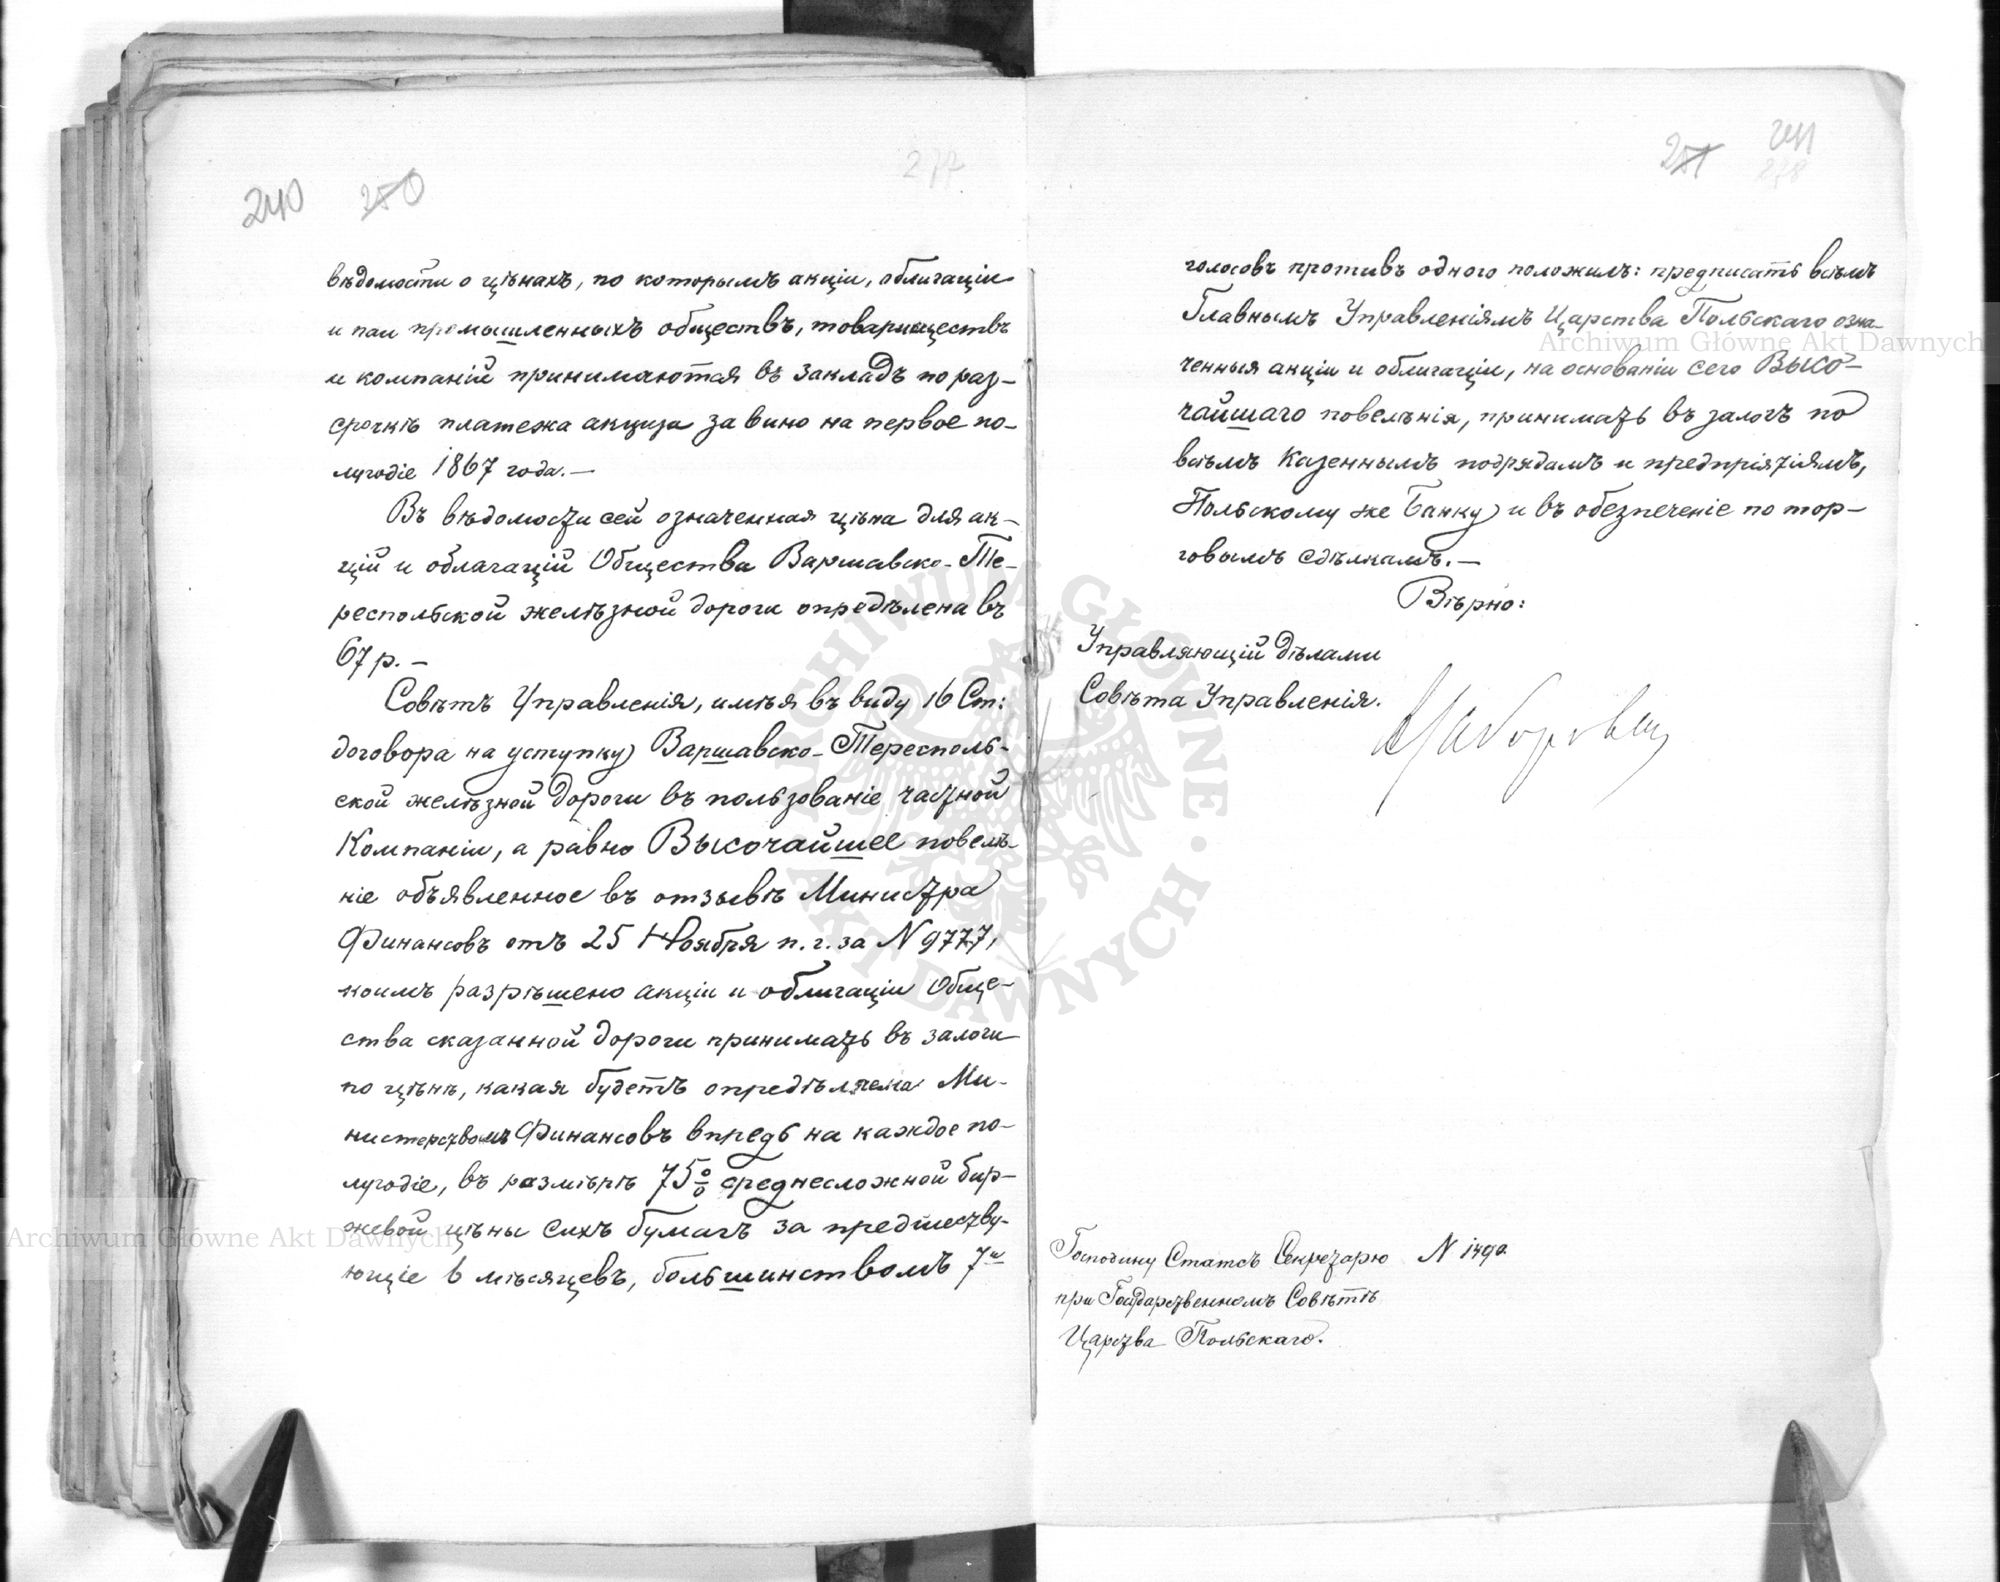 240 250 277
вѣдомости о цѣнахъ, по которымъ акціи, облигаціи
и паи промышленныхъ обществъ, товариществъ
и компаній принимаются въ закладъ по раз-
срочкѣ платежа акциза за вино на первое по-
лугодіе 1867 года.—
Въ вѣдомости сей означенная цѣна для ак-
цій и облагацій Общества Варшавско-Те-
респольской желѣзной дороги опредѣлена въ
67 р.—
Совѣтъ Управленія, имѣя въ виду 16 Ст:
договора на уступку Варшавско-Тересполь-
ской желѣзной дороги въ пользованіе частной
Компаніи, а равно Высочайшее повелѣ-
ніе объявленное въ отзывѣ Министра
Финансовъ отъ 25 Ноября п. г. за N 9777,
коимъ разрѣшено акціи и облигаціи Обще-
ства сказанной дороги принимать въ залоги
по цѣнѣ, какая будетъ опредѣляема Ми-
нистерствомъ Финансовъ впредь на каждое по-
лугодіе, въ размѣрѣ 75% среднесложной бир-
жевой цѣны сихъ бумагъ за предшеству-
ющіе 6 мѣсяцевъ, большинствомъ 7и
251 241
278
голосовъ противъ одного положилъ: предписать всѣмъ
Главнымъ Управленіямъ Царства Польскаго озна-
ченныя акціи и облигаціи, на основаніи сего ВЫСО-
чайшаго повелѣнія, принимать въ залогъ по
всѣмъ казеннымъ подрядамъ и предпріятіямъ,
Польскому же Банку и въ обезпеченіе по тор-
говымъ сдѣлкамъ.—
Вѣрно:
Управляющій дѣлами
Совѣта Управленія.
Господину Статсъ Секретарю N 1490
при Государственномъ Совѣтѣ
Царства Польскаго.
Archiwum Główne Akt Dawnych
Archiwum Główne Akt Dawnych
ARCHIWUM GŁÓWNE · AKT DAWNYCH ·